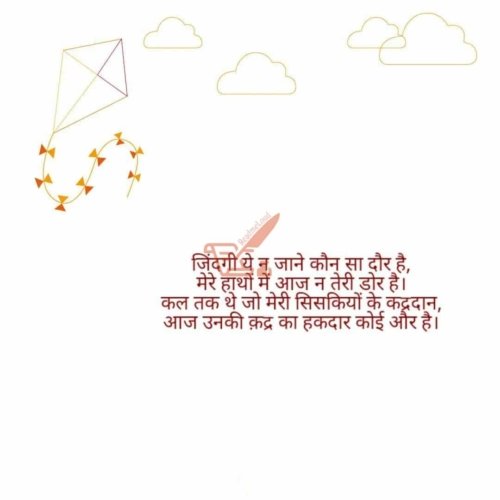 Readmeloud
जिंदगी ये न जाने कौन सा दौर है,
मेरे हाथों में आज न तेरी डोर है।
कल तक थे जो मेरी सिसकियों के कद्रदान,
आज उनकी क़द्र का हकदार कोई और है।